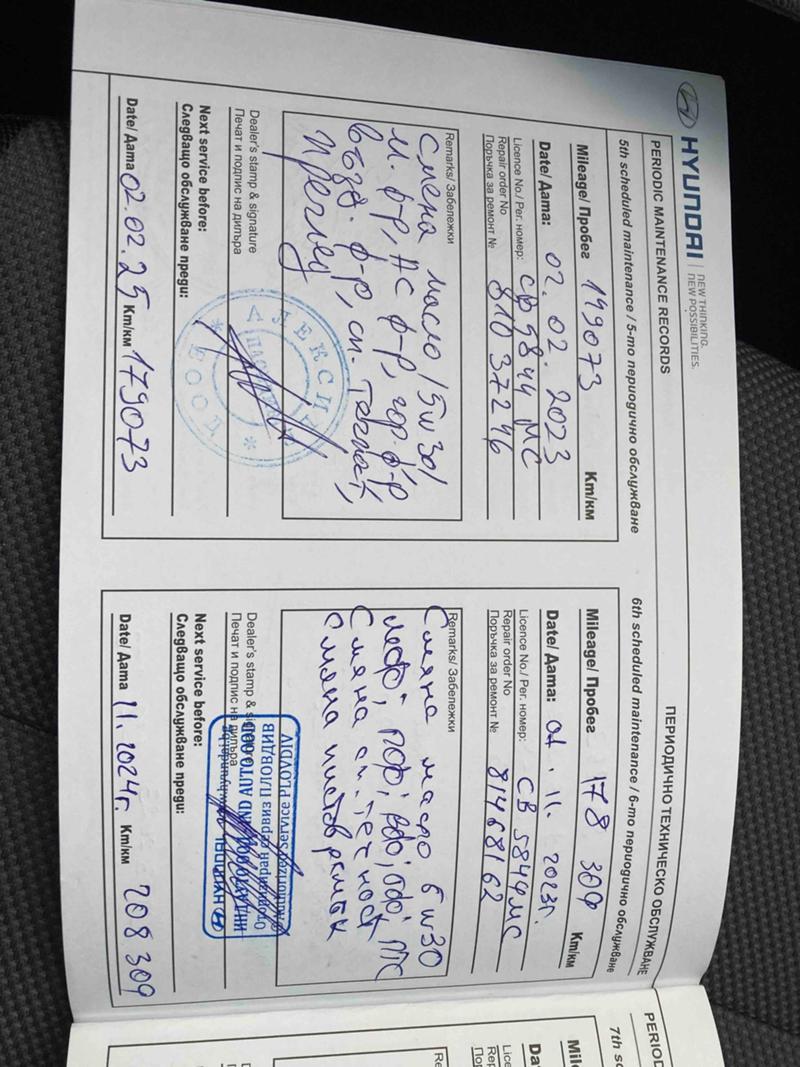 HYUNDAI | NEW THINKING.
NEW POSSIBILITIES.
PERIODIC MAINTENANCE RECORDS
ПЕРИОДИЧНО ТЕХНИЧЕСКО ОБСЛУЖВАНЕ
5th scheduled maintenance / 5-то периодично обслужване
Mileage/ Пробег 149073 Km/км
Date/ Дата: 02. 02. 2023
Licence No./ Рег. номер: СВ 5844 МС
Repair order No
Поръчка за ремонт № 81037246
Remarks/ Забележки
Смена масло /5w30/
м. ф-р, АС ф-р, гор. ф-р
възд. ф-р, сп. течност,
Преглед
Dealer's stamp & signature
Печат и подпис на дилъра
АЛЕКСИ
ЕООД
Next service before:
Следващо обслужване преди:
Date/ Дата 02.02.25 Km/км 179073
6th scheduled maintenance / 6-то периодично обслужване
Mileage/ Пробег 178 309 Km/км
Date/ Дата: 01. 11. 2023г.
Licence No./ Рег. номер: СВ 5844МС
Repair order No
Поръчка за ремонт № 81468162
Remarks/ Забележки
Смяна масло 5w30
Смяна сп. течност
Смяна
Dealer's stamp &
Печат и подпис на дилъра
HYUNDAI
INDUGOOD AUTO
Оторизиран сервиз ПЛОВДИВ
Authorized Service PLOVDIV
Next service before:
Следващо обслужване преди:
Date/ Дата 11. 2024г. Km/км 208 309
PERIOD
7th sc
Mil
Da
Lice
Rep
Пор
Re